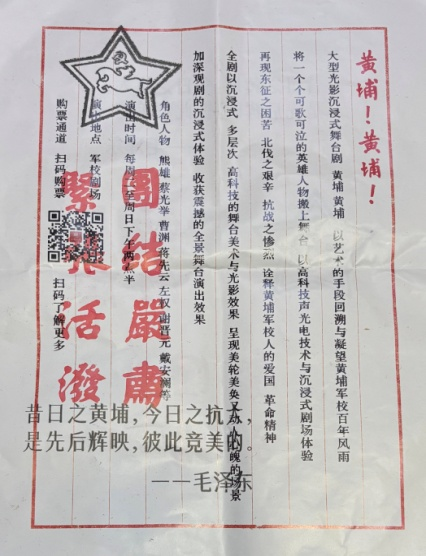 黄埔！黄埔！
大型光影沉浸式舞台剧 黄埔 黄埔 以艺术的手段回溯与凝望黄埔军校百年风雨
将一个个可歌可泣的英雄人物搬上舞台 以高科技声光电技术与沉浸式剧场体验
再现东征之困苦 北伐之艰辛 抗战之惨烈 诠释黄埔军校人的爱国 革命精神
全剧以沉浸式 多层次 高科技的舞台美术与光影效果 呈现美轮美奂又动人心魄的场景
加深观剧的沉浸式体验 收获震撼的全景舞台演出效果
角色人物 熊雄 蔡光举 曹渊 蒋先云 左权 谢晋元 戴安澜等
演出时间 每周 至周日下午两点半
演出地点 军校剧场
购票通道 扫码购票 扫码了解更多
團結嚴肅
緊張活潑
昔日之黄埔,今日之抗大,
是先后辉映,彼此竞美的。
——毛泽东